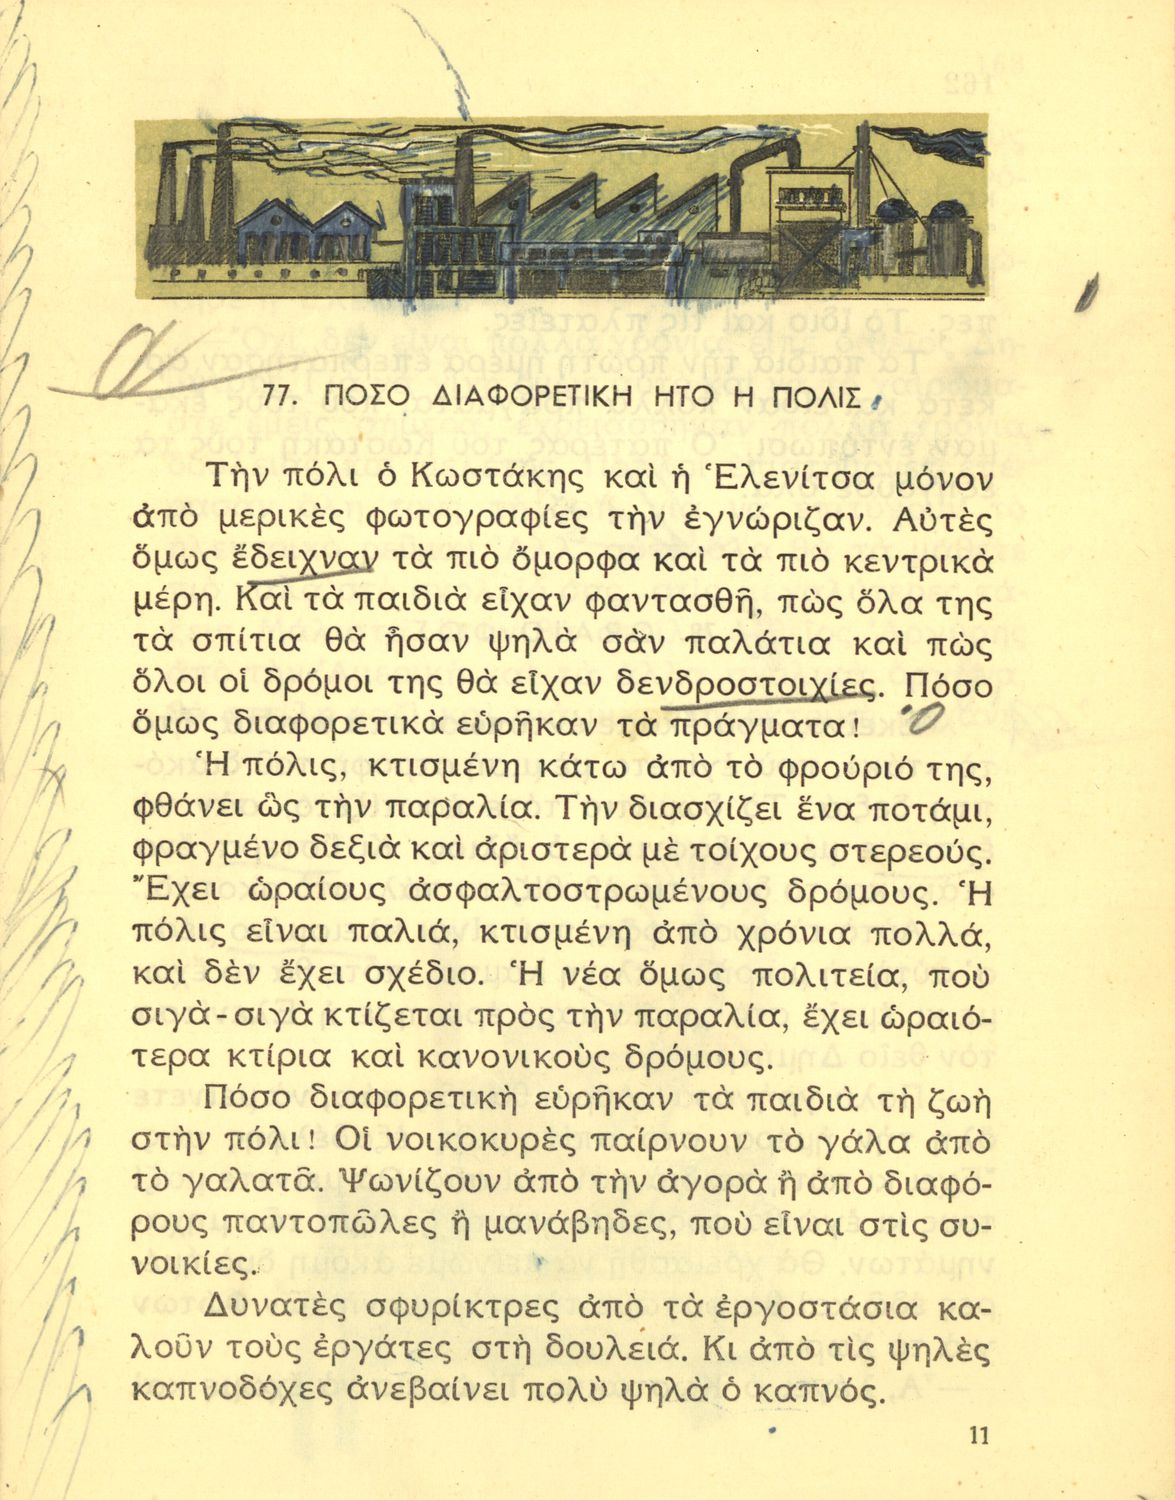 77. ΠΟΣΟ ΔΙΑΦΟΡΕΤΙΚΗ ΗΤΟ Η ΠΟΛΙΣ
Τὴν πόλι ὁ Κωστάκης καὶ ἡ Ἑλενίτσα μόνον
ἀπὸ μερικὲς φωτογραφίες τὴν ἐγνώριζαν. Αὐτὲς
ὅμως ἔδειχναν τὰ πιὸ ὄμορφα καὶ τὰ πιὸ κεντρικὰ
μέρη. Καὶ τὰ παιδιὰ εἶχαν φαντασθῆ, πὼς ὅλα της
τὰ σπίτια θὰ ἦσαν ψηλὰ σὰν παλάτια καὶ πὼς
ὅλοι οἱ δρόμοι της θὰ εἶχαν δενδροστοιχίες. Πόσο
ὅμως διαφορετικὰ εὑρῆκαν τὰ πράγματα!
Ἡ πόλις, κτισμένη κάτω ἀπὸ τὸ φρούριό της,
φθάνει ὣς τὴν παραλία. Τὴν διασχίζει ἕνα ποτάμι,
φραγμένο δεξιὰ καὶ ἀριστερὰ μὲ τοίχους στερεούς.
Ἔχει ὡραίους ἀσφαλτοστρωμένους δρόμους. Ἡ
πόλις εἶναι παλιά, κτισμένη ἀπὸ χρόνια πολλά,
καὶ δὲν ἔχει σχέδιο. Ἡ νέα ὅμως πολιτεία, ποὺ
σιγὰ-σιγὰ κτίζεται πρὸς τὴν παραλία, ἔχει ὡραιό-
τερα κτίρια καὶ κανονικοὺς δρόμους.
Πόσο διαφορετικὴ εὑρῆκαν τὰ παιδιὰ τὴ ζωὴ
στὴν πόλι! Οἱ νοικοκυρὲς παίρνουν τὸ γάλα ἀπὸ
τὸ γαλατᾶ. Ψωνίζουν ἀπὸ τὴν ἀγορὰ ἢ ἀπὸ διαφό-
ρους παντοπῶλες ἢ μανάβηδες, ποὺ εἶναι στὶς συ-
νοικίες.
Δυνατὲς σφυρίκτρες ἀπὸ τὰ ἐργοστάσια κα-
λοῦν τοὺς ἐργάτες στὴ δουλειά. Κι ἀπὸ τὶς ψηλὲς
καπνοδόχες ἀνεβαίνει πολὺ ψηλὰ ὁ καπνός.
11